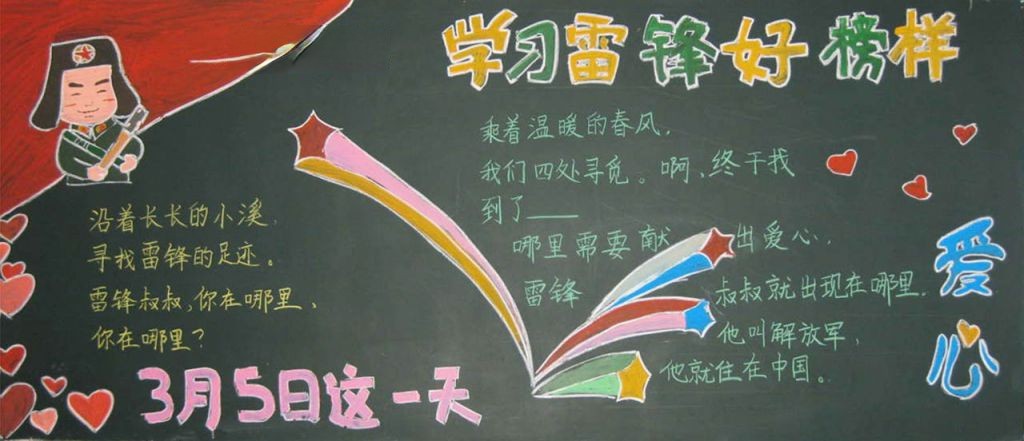 学习雷锋好榜样
沿着长长的小溪，
寻找雷锋的足迹。
雷锋叔叔，你在哪里，
你在哪里？
3月5日这一天
乘着温暖的春风，
我们四处寻觅。啊，终于找
到了——
哪里需要献出爱心，
雷锋叔叔就出现在哪里。
他叫解放军，
他就住在中国。
爱心